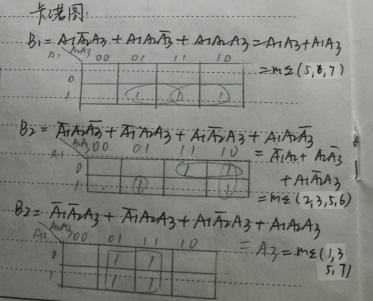 卡诺图:
B₁ = A₁A̅₂A₃ + A₁A₂A̅₃ + A₁A₂A₃ = A₁A₃ + A₁A₃
A₁ A₂A₃ 00 01 11 10
= mΣ(5,6,7)
0
1 1 1 1
B₂ = A̅₁A₂A̅₃ + A̅₁A₂A₃ + A₁A̅₂A₃ + A₁A₂A̅₃
A₁ A₂A₃ 00 01 11 10 = A̅₁A₂ + A₂A̅₃
0 1 1 + A₁A̅₂A₃
1 1 1 = mΣ(2,3,5,6)
B₂ = A̅₁A̅₂A₃ + A̅₁A₂A₃ + A₁A̅₂A₃ + A₁A₂A₃
A₁ A₂A₃ 00 01 11 10 = A₃ = mΣ(1,3
0 1 1 5,7)
1 1 1